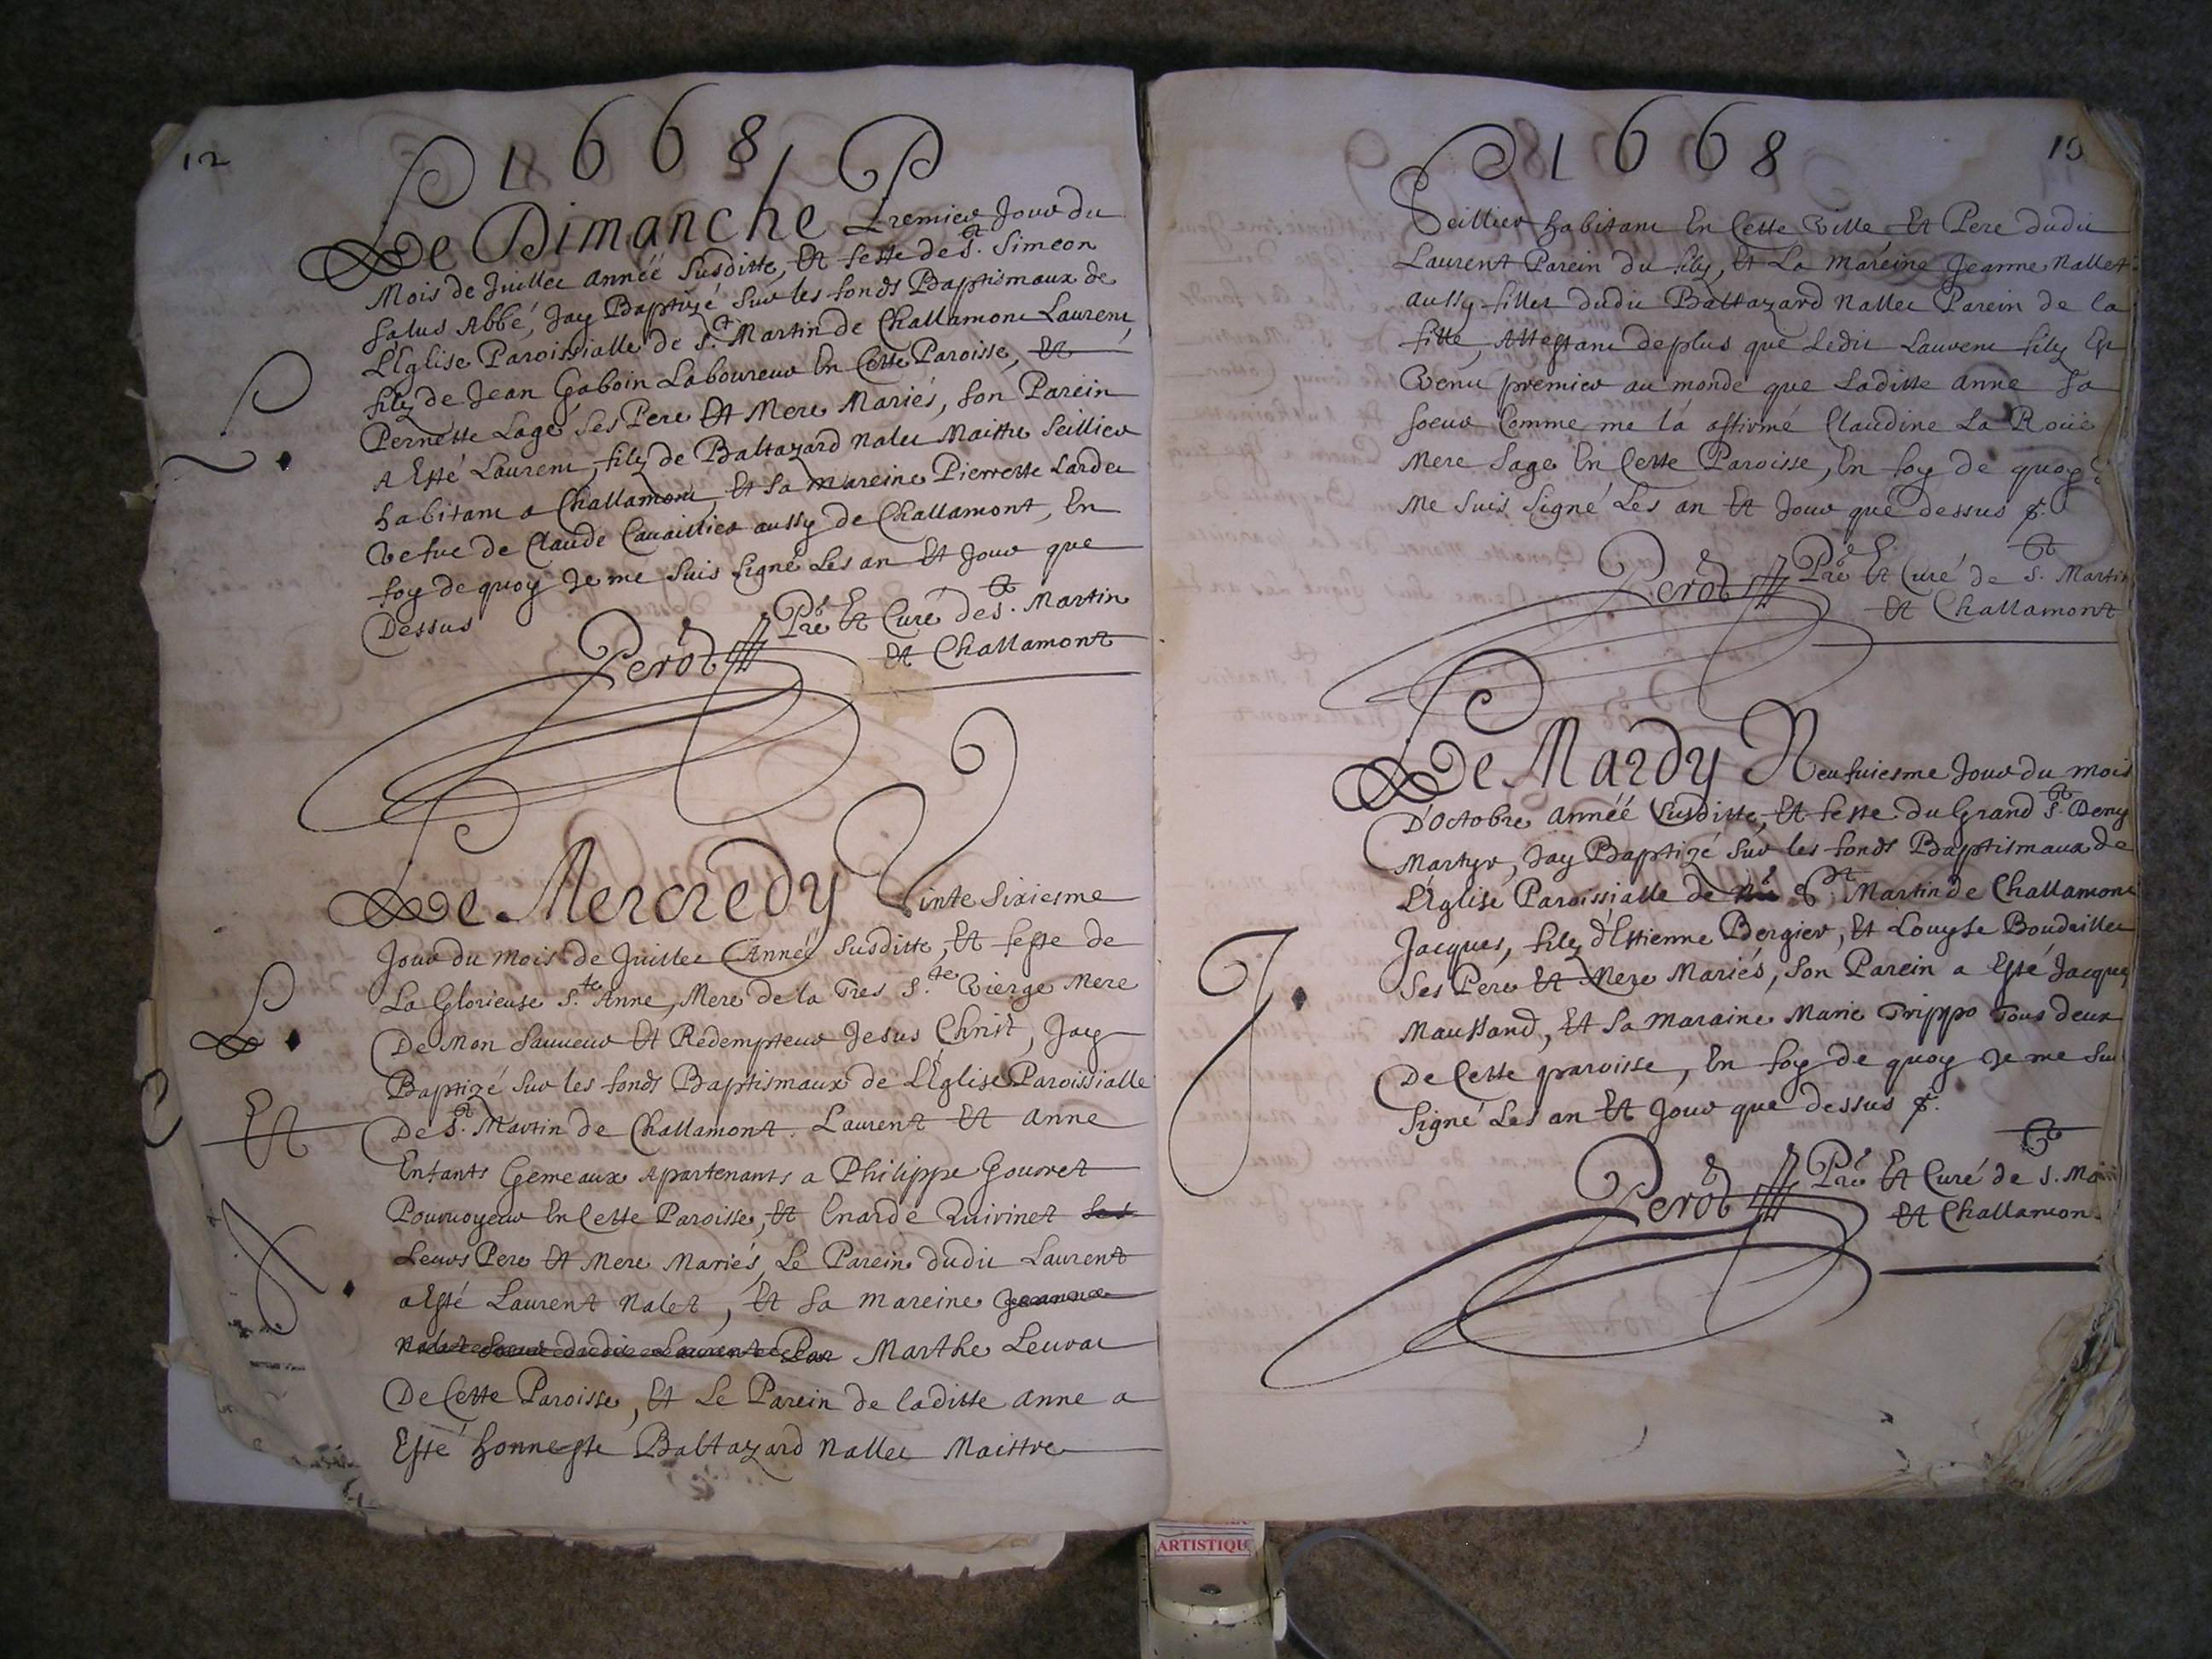 12
1668
Le Dimanche Premier Jour du
Mois de Juillet année susditte, Et feste de St. Simeon
salus Abbé, Jay Baptizé sur les fonds Baptismaux de
L'Eglise Paroissialle de St. Martin de Challamont Laurent,
filz de Jean Gaboin Laboureur En Cette Paroisse, Et
Pernette Lage ses Pere Et Mere Mariés, son Parein
A Esté Laurent, filz de Baltazard nalet Maistre seillier
habitant a Challamont, Et sa mareine Pierrette Lardet
Vefue de Claude Cauaillier aussy de Challamont, En
foy de quoy Je me suis signé Les an Et Jour que
Dessus
Perot Pbre Et Curé de St. Martin
Et Challamont
Le Mercredy Vinte Sixiesme
Jour du Mois de Juillet Année susditte, Et feste de
La Glorieuse Ste. Anne, Mere de la Tres Ste. Vierge Mere
De Mon Sauueur Et Redempteur Jesus Christ, Jay
Baptizé sur les fonds Baptismaux de L'Eglise Paroissialle
L.
De St. Martin de Challamont. Laurent Et Anne
Et
Enfants Gemeaux Apartenants a Philippe Gouuret
Pouruoyeur En Cette Paroisse, Et Enarde Quirinet ses
Leurs Pere Et Mere Mariés, Le Parein dudit Laurent
A.
a Esté Laurent nalet, Et sa mareine Jeanne
nalet soeur dudit Laurent Par Marthe Leurat
De Cette Paroisse, Et Le Parein de laditte Anne a
Esté honneste Baltazard nallet Maistre
1668
Seillier habitant En Cette Ville Et Pere dudit
Laurent Parein du filz, Et La mareine Jeanne nallet
aussy fille dudit Baltazard nallet Parein de la
fille, Attestant deplus que Ledit Laurent filz Est
Venu premier au monde que Laditte anne sa
soeur Comme me la affirmé Claudine La Roüe
Mere sage En Cette Paroisse, En foy de quoy
Me suis signé Les an Et Jour que dessus
Perot Pbre Et Curé de St. Martin
Et Challamont
Le Mardy Neufuiesme Jour du mois
D'octobre année susditte, Et feste du Grand St. Deny
Martyr, Jay Baptizé sur les fonds Baptismaux de
L'Eglise Paroissialle de St. Martin de Challamont
J.
Jacques, filz d'Estienne Bergier, Et Louyse Boudeillet
Ses Pere Et Mere Mariés, son Parein a Esté Jacques
Maussand, Et sa maraine Marie Trippo Tous deux
De Cette paroisse, En foy de quoy Je me sui
Signé Les an Et Jour que dessus
Perot Pbre Et Curé de St. Ma
Et Challamon
ARTISTIQU